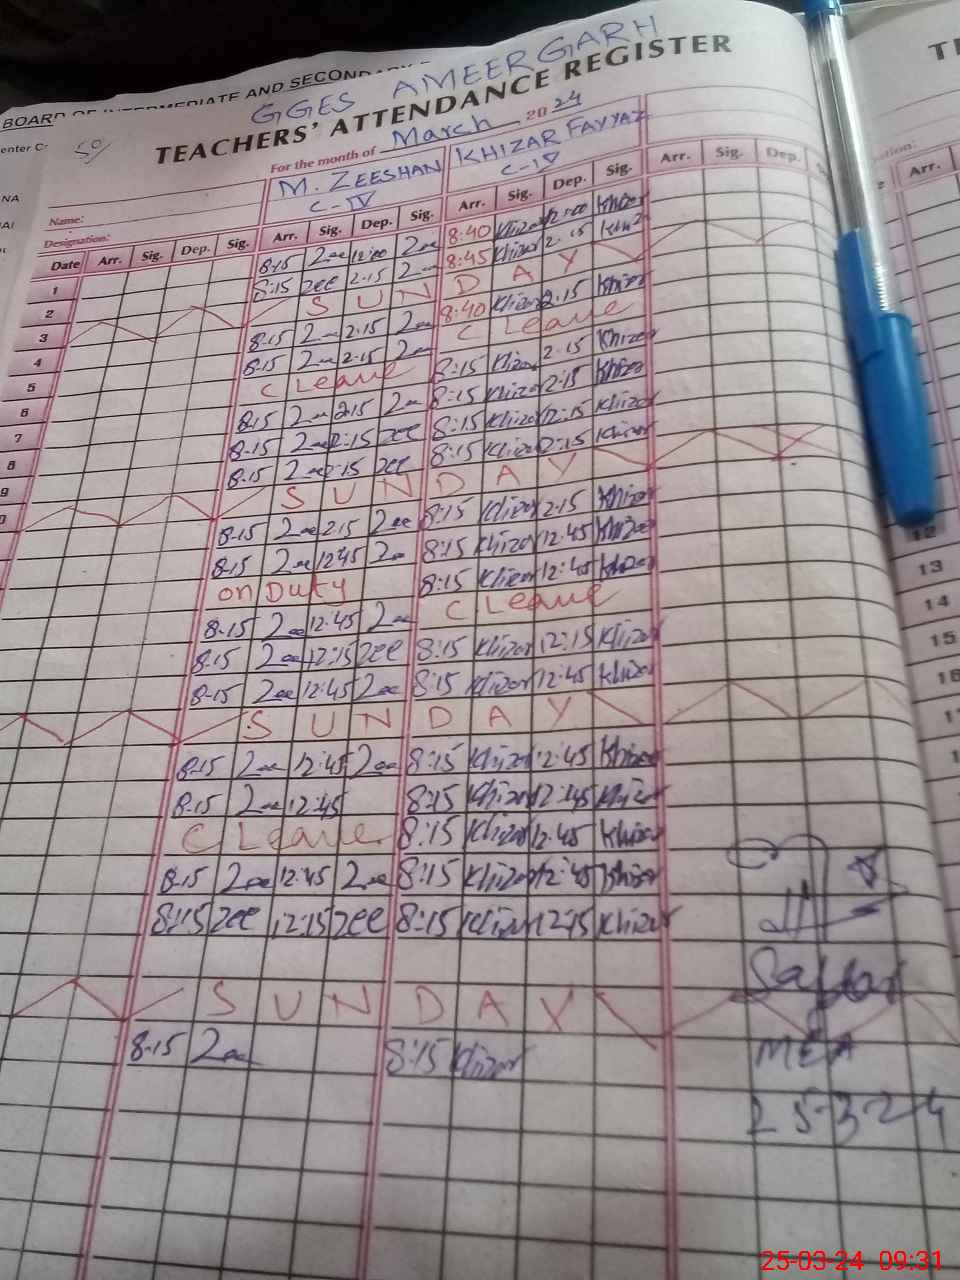 BOARD OF INTERMEDIATE AND SECONDARY
GGES AMEERGARH
TEACHERS' ATTENDANCE REGISTER
50/
For the month of March 2024
Name: M. ZEESHAN KHIZAR FAYYAZ
Designation: C-IV C-IV
Date Arr. Sig. Dep. Sig. Arr. Sig. Dep. Sig. Arr. Sig. Dep. Sig. Arr. Sig. Dep.
1 8:15 Zee 12:00 Zee 8:40 Khizar 12:00 Khizar
2 8:15 zee 2:15 Zee 8:45 Khizar 2:15
3 S U N D A Y
4 8:15 Zee 2:15 Zee 8:40 Khizar 2:15 Khizar
5 8:15 Zee 2:15 Zee C Leave
6 C Leave 8:15 Khizar 2:15 Khizar
7 8:15 Zee 2:15 Zee 8:15 Khizar 2:15 Khizar
8 8:15 Zee 2:15 zee 8:15 Khizar 12:15 Khizar
9 8:15 Zee 2:15 zee 8:15 Khizar 2:15 Khizar
S U N D A Y
8:15 Zee 2:15 Zee 8:15 Khizar 2:15 Khizar
8:15 Zee 12:45 Zee 8:15 Khizar 12:45 Khizar
on Duty 8:15 Khizar 12:45 Khizar
8:15 Zee 12:45 Zee C Leave
8:15 Zee 12:15 zee 8:15 Khizar 12:15 Khizar
8:15 Zee 12:45 Zee 8:15 Khizar 12:45 Khizar
S U N D A Y
8:15 Zee 12:45 Zee 8:15 Khizar 12:45 Khizar
8:15 Zee 12:45 8:15 Khizar 12:45 Khizar
C Leave 8:15 Khizar 12:45 Khizar
8:15 Zee 12:45 Zee 8:15 Khizar 12:45 Khizar
8:15 zee 12:15 zee 8:15 Khizar 12:15 Khizar
S U N D A Y
8:15 Zee 8:15 Khizar
MEA
25-3-24
Arr.
12
13
14
15
16
25-03-24 09:31